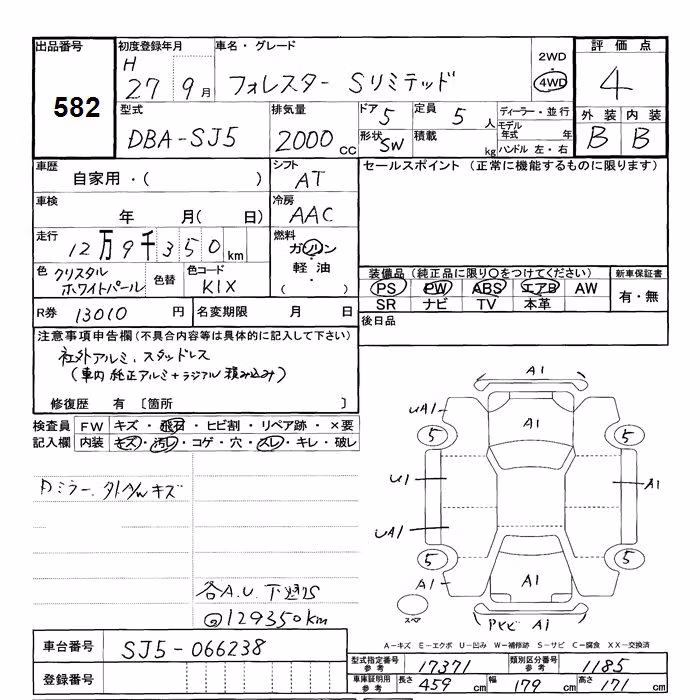 出品番号 初度登録年月 車名・グレード 2WD 評価点
582 H 27 9月 フォレスター Sリミテッド 4WD 4
型式 排気量 ドア 5 定員 5人 ディーラー・並行 外装 内装
DBA-SJ5 2000cc 形状 SW 積載 kg モデル年式 年 B B
ハンドル 左・右
車歴 シフト セールスポイント (正常に機能するものに限ります)
自家用・( ) AT
車検 冷房
年 月( 日) AAC
走行 燃料
12万9千350km ガソリン
軽油
( )
色 クリスタルホワイトパール 色替 色コード K1X
装備品 (純正品に限り○をつけてください) 新車保証書
PS PW ABS エアB AW 有・無
SR ナビ TV 本革
R券 13010円 名変期限 月 日 後日品
注意事項申告欄(不具合内容等は具体的に記入して下さい)
社外アルミ、スタッドレス
(車内 純正アルミ+ラジアル 積み込み)
修復歴 有 [箇所 ]
検査員 FW キズ・飛石・ヒビ割・リペア跡・×要
記入欄 内装 キズ・汚レ・コゲ・穴・スレ・キレ・破レ
ミラー、
キズ
各A.U.
@129350km
A1
UA1 A1
5 5
U1 A1
UA1
5 5
A1 A1
スペア A1
A-キズ E-エクボ U-凹み W-補修跡 S-サビ C-腐食 XX-交換済
車台番号 SJ5-066238
登録番号
型式指定番号 参考 17371 類別区分番号 参考 1185
車庫証明用 参考 長さ 459cm 幅 179cm 高さ 171cm